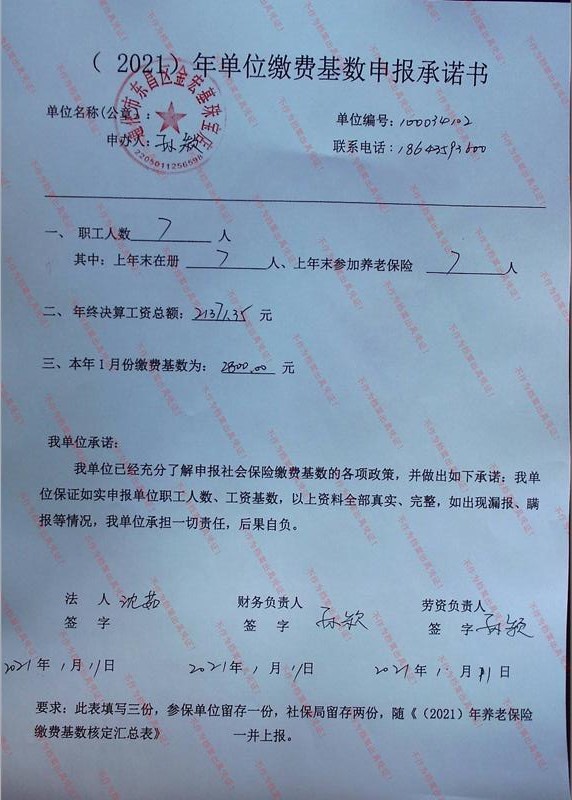 （ 2021）年单位缴费基数申报承诺书
单位名称(公章)： 单位编号：100034102
申办人：孙颖 联系电话：18643593600
通化市东昌区金宏基珠宝店
2205011256598
一、 职工人数 7 人
其中：上年末在册 7 人、上年末参加养老保险 7 人
二、 年终决算工资总额：21371.35 元
三、本年1月份缴费基数为： 2800.00 元
我单位承诺：
我单位已经充分了解申报社会保险缴费基数的各项政策，并做出如下承诺：我单
位保证如实申报单位职工人数、工资基数，以上资料全部真实、完整，如出现漏报、瞒
报等情况，我单位承担一切责任，后果自负。
法 人 沈茹 财务负责人 劳资负责人
签 字 签 字 孙颖 签 字 孙颖
2021年 1月 11日 2021年 1月 11日 2021年 1月 11日
要求：此表填写三份，参保单位留存一份，社保局留存两份，随《（2021）年养老保险
缴费基数核定汇总表》 一并上报。